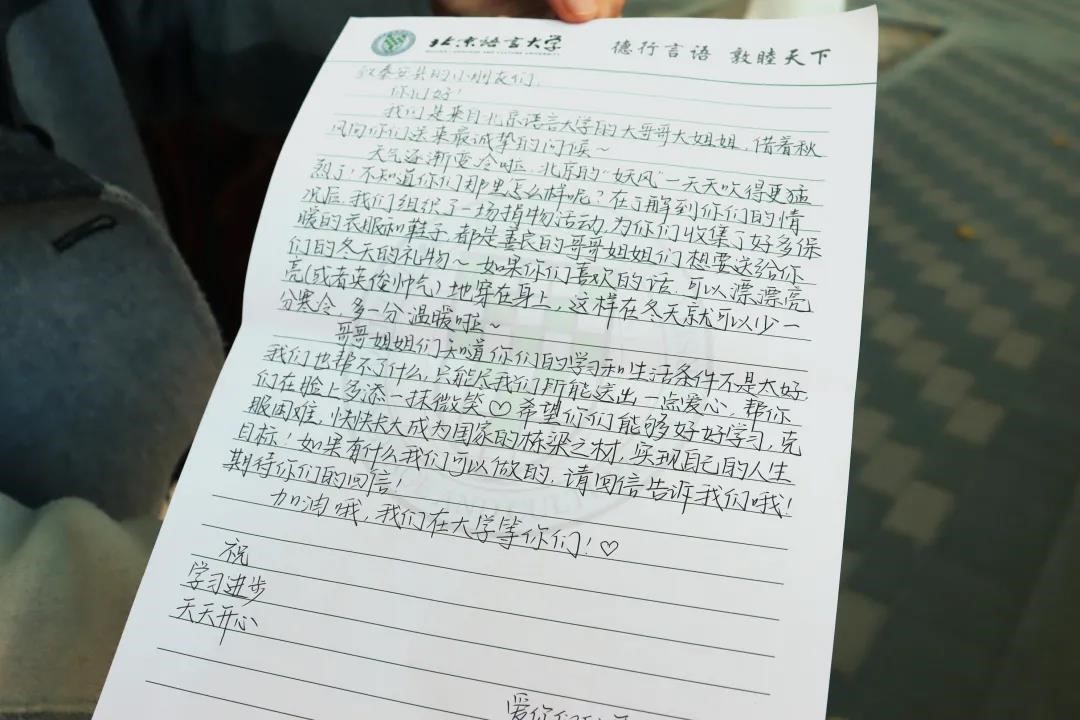 北京语言大学
德行言语 敦睦天下
泰安县的小朋友们,
你们好!
我们是来自北京语言大学的大哥哥大姐姐,借着秋
风向你们送来最诚挚的问候~
天气逐渐变冷啦,北京的“妖风”一天天吹得更猛
烈了!不知道你们那里怎么样呢?在了解到你们的情
况后,我们组织了一场捐物活动,为你们收集了好多保
暖的衣服和鞋子,都是善良的哥哥姐姐们想要送给你
们的冬天的礼物~如果你们喜欢的话,可以漂漂亮
亮(或者英俊帅气)地穿在身上,这样在冬天就可以少一
分寒冷,多一分温暖啦~
哥哥姐姐们知道你们的学习和生活条件不是太好,
我们也帮不了什么,只能尽我们所能送出一点爱心,帮你
们在脸上多添一抹微笑♡希望你们能够好好学习,克
服困难,快快长大成为国家的栋梁之材,实现自己的人生
目标!如果有什么我们可以做的,请回信告诉我们哦!
期待你们的回信!
加油哦,我们在大学等你们!♡
祝
学习进步
天天开心
爱你们的